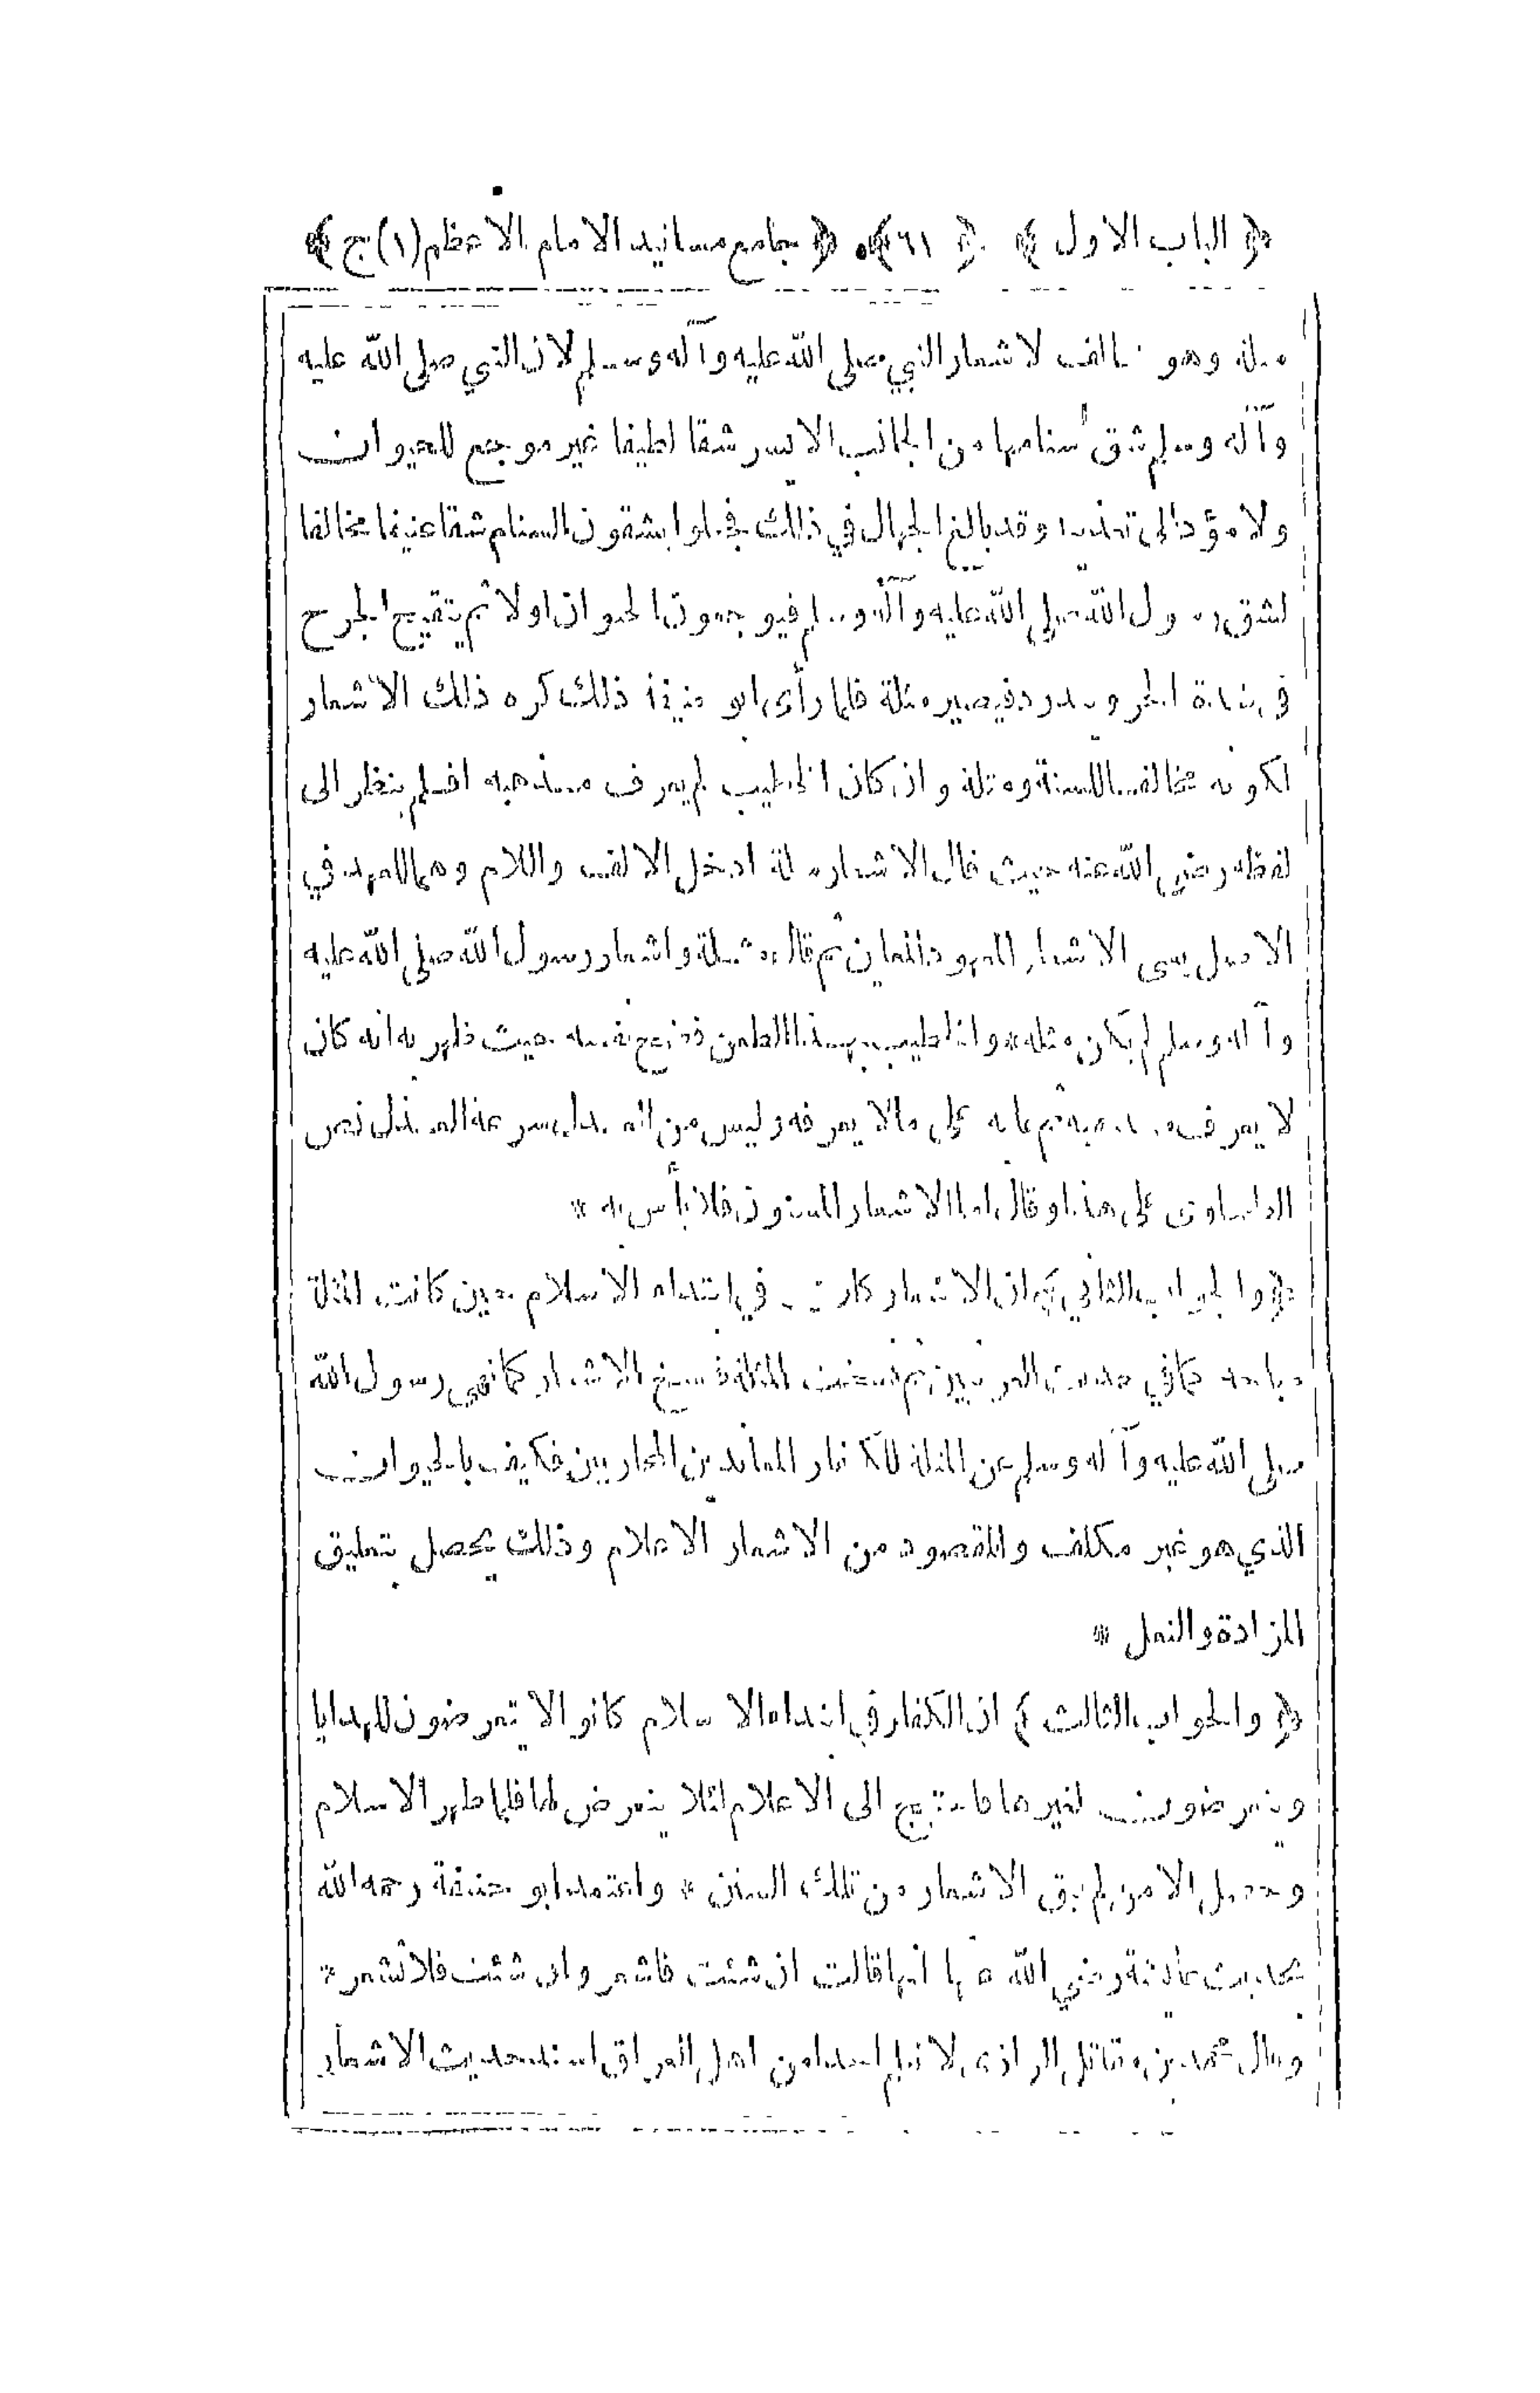 ﴿ الباب الاول ﴾ ﴿ ٦١ ﴾ ﴿ جامع مسانيد الامام الاعظم (١) ج ﴾
مثلة وهو مخالف لاشعار النبي صلى الله عليه وآله وسلم لان النبي صلى الله عليه
وآله وسلم شق سنامها من الجانب الايسر شقا لطيفا غير موجع للحيوان
ولا مؤد الى تعذيبه وقد بالغ الجهال في ذلك فجعلوا يشقون السنام شقا عنيفا مخالفا
لشق رسول الله صلى الله عليه وآله وسلم فيوجعون الحيوان اولا ثم يتقيح الجرح
في شدة الحر ويدود فيصير مثلة فلما رأى ابو حنيفة ذلك كره ذلك الاشعار
لكونه مخالفا للسنة ومثلة وان كان الخطيب لم يعرف مذهبه افلم ينظر الى
لفظه رضي الله عنه حيث قال الاشعار مثلة ادخل الالف واللام وهما للعهد في
الاصل يعنى الاشعار المعهود المعاين ثم قال مثلة واشعار رسول الله صلى الله عليه
وآله وسلم لم يكن مثلة * والخطيب بهذا الطعن فضح نفسه حيث ظهر به انه كان
لا يعرف مذهبه ثم عابه على مالا يعرفه وليس من العدل سرعة العذل نص
الطحاوى على هذا وقال اما الاشعار المسنون فلا بأس به *
﴿ والجواب الثاني ﴾ ان الاشعار كان في ابتداء الاسلام حين كانت المثلة
مباحة كما في حديث العرنيين ثم نسخت المثلة فنسخ الاشعار كما نهى رسول الله
صلى الله عليه وآله وسلم عن المثلة للكفار المعاندين المحاربين فكيف بالحيوان
الذي هو غير مكلف والمقصود من الاشعار الاعلام وذلك يحصل بتعليق
المزادة والنعل *
﴿ والجواب الثالث ﴾ ان الكفار في ابتداء الاسلام كانوا لا يتعرضون للهدايا
ويتعرضون لغيرها فاحتيج الى الاعلام لئلا يتعرض لها فلما ظهر الاسلام
وحصل الامن لم يبق الاشعار من تلك السنن * واعتمد ابو حنيفة رحمه الله
بحديث عائشة رضي الله عنها انها قالت ان شئت فاشعر وان شئت فلا تشعر *
وقال محمد بن مقاتل الرازى لا نعلم احدا من اهل العراق اسند حديث الاشعار